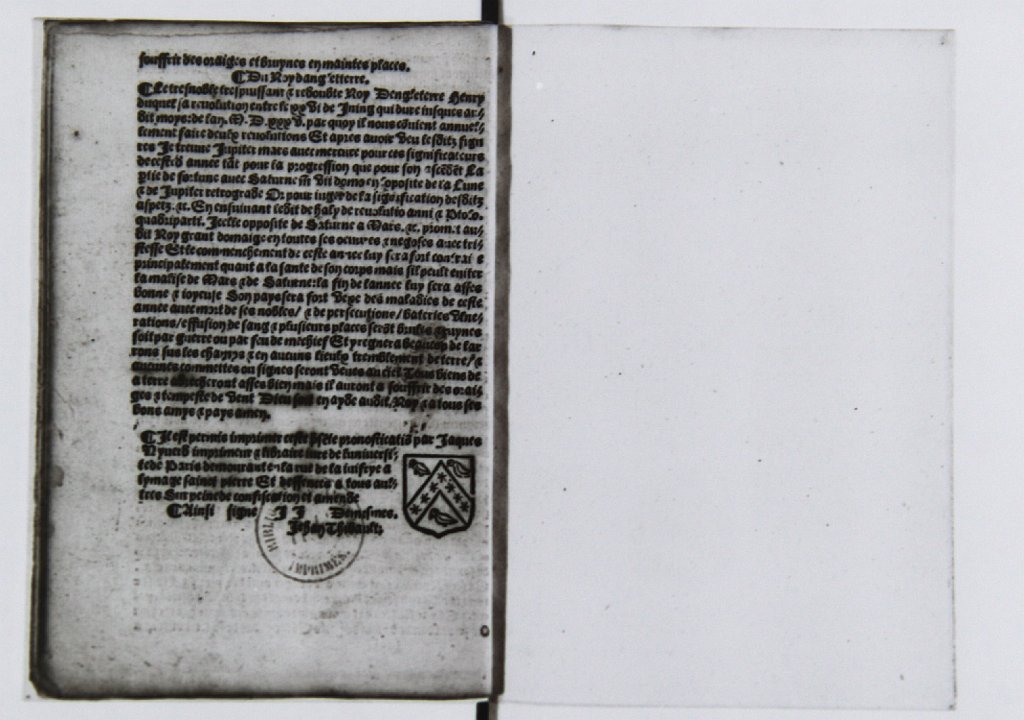 souffrir des oraiges et bruynes en maintes places.
¶ Du Roy dangleterre.
¶ Le tresnoble trespuissant & redoubte Roy Dengleterre Henry
duquel sa reuolution entre le xxvi de Juing qui dure iusques au
dit moys: de lan. M.D.xxxv. par quoy il nous cōuient annuel/
lement faire deulx reuolutions Et apres auoir veu lesditz figu
res Je treuue Jupiter mars auec mercure pour ces significateurs
de ceste année tāt pour la progression que pour son ascēdēt La
ptie de fortune auec Saturne en domo en loposite de la Lune
& de Jupiter retrograde Or pour iuger de la signification desditz
aspetz. &c. En ensuiuant ledit de haly de reuolutio anni & Ptolo.
quadriparti. Jcelle opposite de Saturne a Mars. &c. promet au/
dit Roy grant domaige en toutes ses oeuures & negoses auec tri/
stesse Et le commenchement de ceste annee luy sera fort contrai e
principalement quant a la sante de son corps mais sil peult euiter
la malise de Mars & de Saturne: la fin de lannee luy sera asses
bonne & ioyeuse Son pays sera fort vexe des maladies de ceste
annee auec mort de ses nobles/ & de persecutions/ bateries
rations/ effusion de sang & plusieurs places serōt bruynes
soit par guerre ou par feu de mechief Et y regnera beaucop de lar
rons sus les champs & en aucuns lieulx tremblement de terre/ &
aucunes commettes ou signes seront veues au ciel Tous biens de
la terre seront asses bien mais il auront a souffrir des orai/
ges & tempeste de vent Dieu soit en ayde audit Roy & a tous ses
bons amys & pays amen.
¶ Jl est permis imprimer ceste psēte pronosticatiō par Jaques
Nyuerd imprimeur & libraire iure de luniuersi/
te de Paris demourant en la rue de la iuifrye a
lymage sainct pierre Et deffences a tous aul/
tres Sur peine de confiscation et amende
¶ Ainsi signe J J Demesmes.
Jehan Thibault.
BIBL
IMPRIMES.